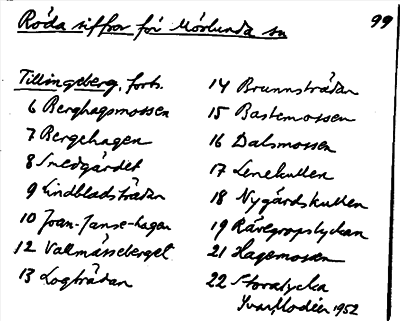 Röda siffror för Mörlunda sn
99
Tillingeberg, forts.
6 Berghagsmossen
7 Bergehagen
8 Smedgärdet
9 Lindbladsträdan
10 Joan-Janse-hagen
12 Vallmässeberget
13 Logträdan
14 Brunnsträdan
15 Bastemossen
16 Dalsmossen
17 Lenekullen
18 Nygårdskullen
19 Rävegropslyckan
21 Hagemossen
22 Storalycka
Ivar Modéer 1952